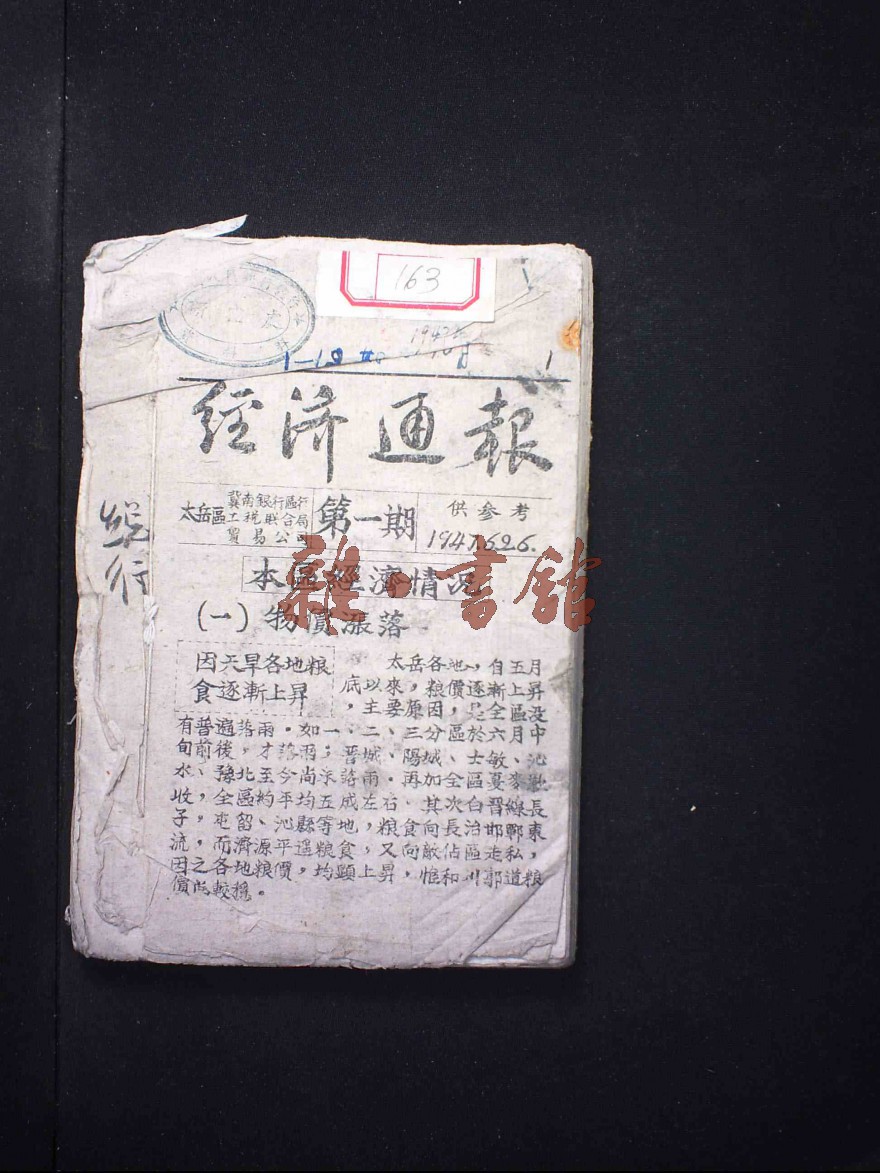 163
1-19
1
經济通報
太岳區
冀南銀行區行
工税联合局
貿易公司
第一期
供参考
1947.6.26.
総行
雜·書館
本區經濟情况
(一)物價漲落
因天旱各地粮
食逐漸上昇
太岳各地,自五月
底以來,粮價逐漸上昇
,主要原因,是全區没
有普遍落雨。如一、二、三分區於六月中
旬前後,才落雨;晋城、陽城、士敏、沁
水、豫北至今尚未落雨。再加全區夏麥歉
收,全區約平均五成左右、其次白晋線長
子,屯留、沁縣等地,粮食向長治邯鄲東
流,而濟源平遥粮食,又向敵佔區走私,
因之各地粮價,均顕上昇,惟和川郭道粮
價尚較穏。